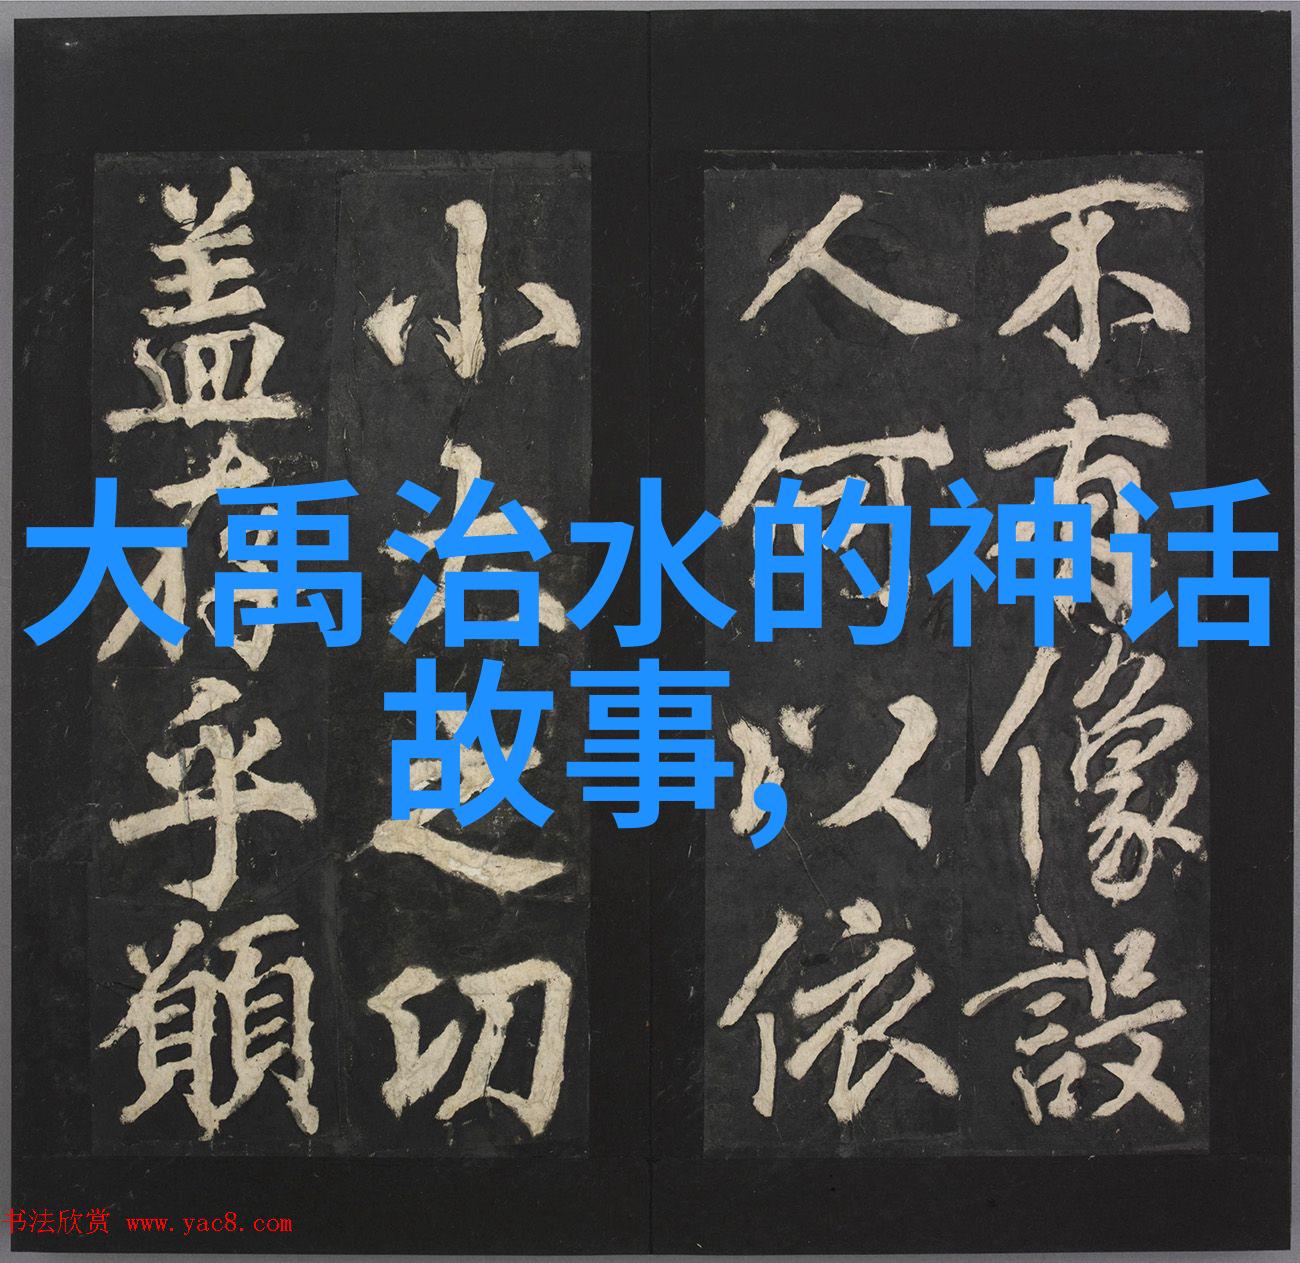 大禹治水的神话
故事,
不有像設
人何以依
小大之切
盖乎願
书法欣赏 www.yac8.com